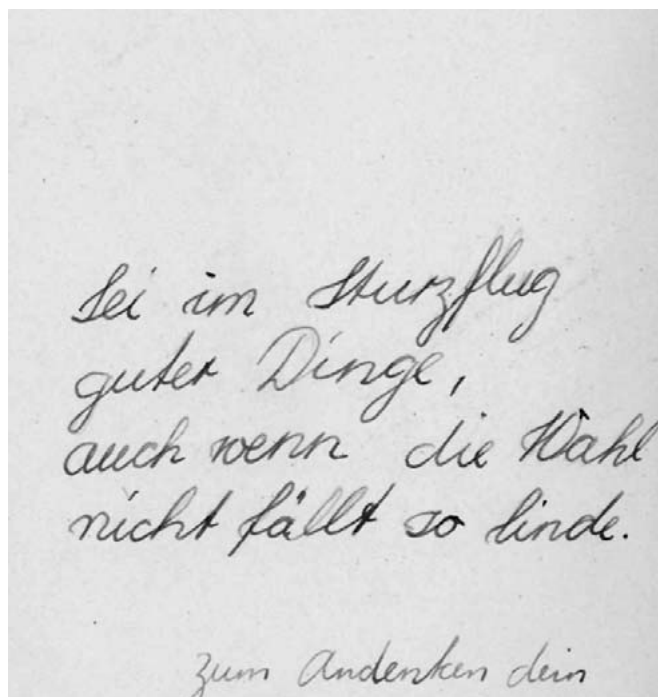 Sei im Sturzflug
guter Dinge,
auch wenn die Wahl
nicht fällt so linde.
zum Andenken dein